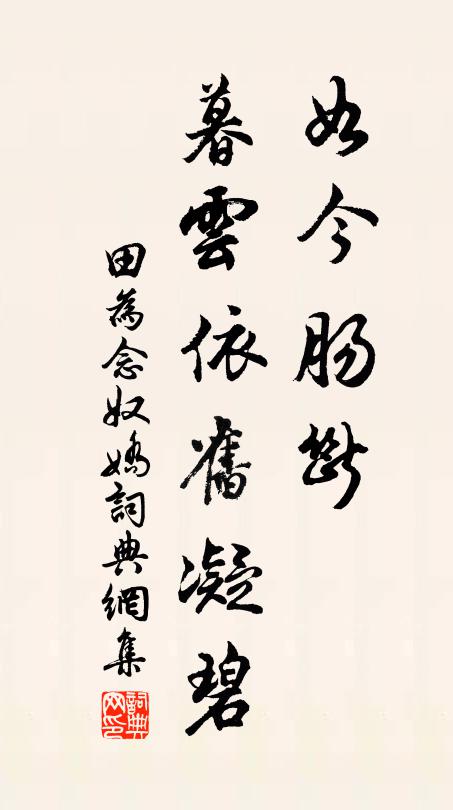 如今肠斷
暮雲依舊凝碧
田為念奴嬌詞典網集
詞典網印